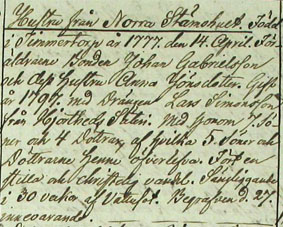 Hustru från Norra Stamshult. Född
i Timmertorp år 1777. den 14. April. För-
äldrarne Bonden Johan Gabrielsson
och dess Hustru Anna Jönsdotter. Gift
år 1797. med Drängen Lars Simonsson
från Med honom 7. Sö-
ner och 4 Döttrar, af hvilka 5. Söner och
Döttrarne henne öfverlefva. Fört en
stilla och christelig vandel. Sängliggande
i 30 veckor af Vattusot. Begrafven d. 27.